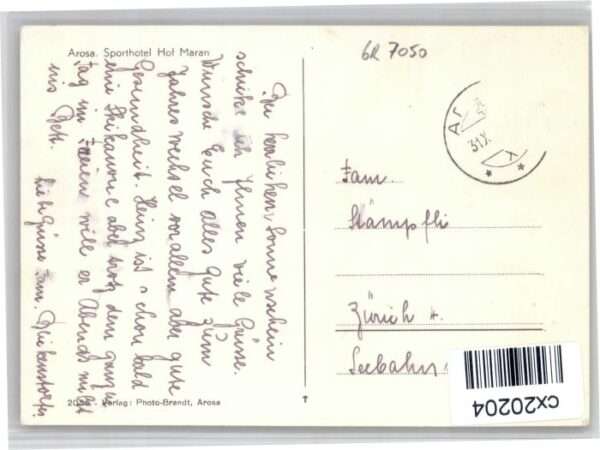 Arosa. Sporthotel Hof Maran
GR 7050
Bei herrlichem Sonnenschein
schicke ich Ihnen viele Grüsse.
Wünsche Euch alles Gute zum
Jahreswechsel vor allem aber gute
Gesundheit. Heinz ist schon bald
eine Skikanone aber trotz dem ganzen
Tag im Freien will er Abends nicht
ins Bett.
Liebe Grüsse Fam.
AR
31.X
Fam.
Stämpfli
Zürich 4.
Seebahn
Verlag: Photo-Brandt, Arosa
cx20204